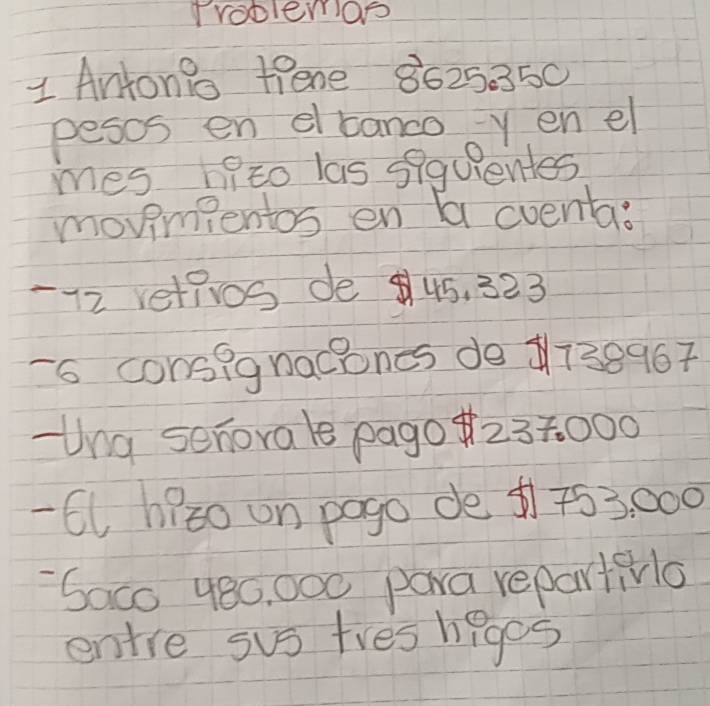 Problemas
1 Antonio tiene 8'625.350
pesos en el banco y en el
mes hizo las siguientes
movimientos en la cuenta:
-12 retiros de $45.323
-6 consignaciones de $138967
-Una señora le pago $237.000
-El hizo un pago de $753.000
-Saco 480.000 para repartirlo
entre sus tres higos